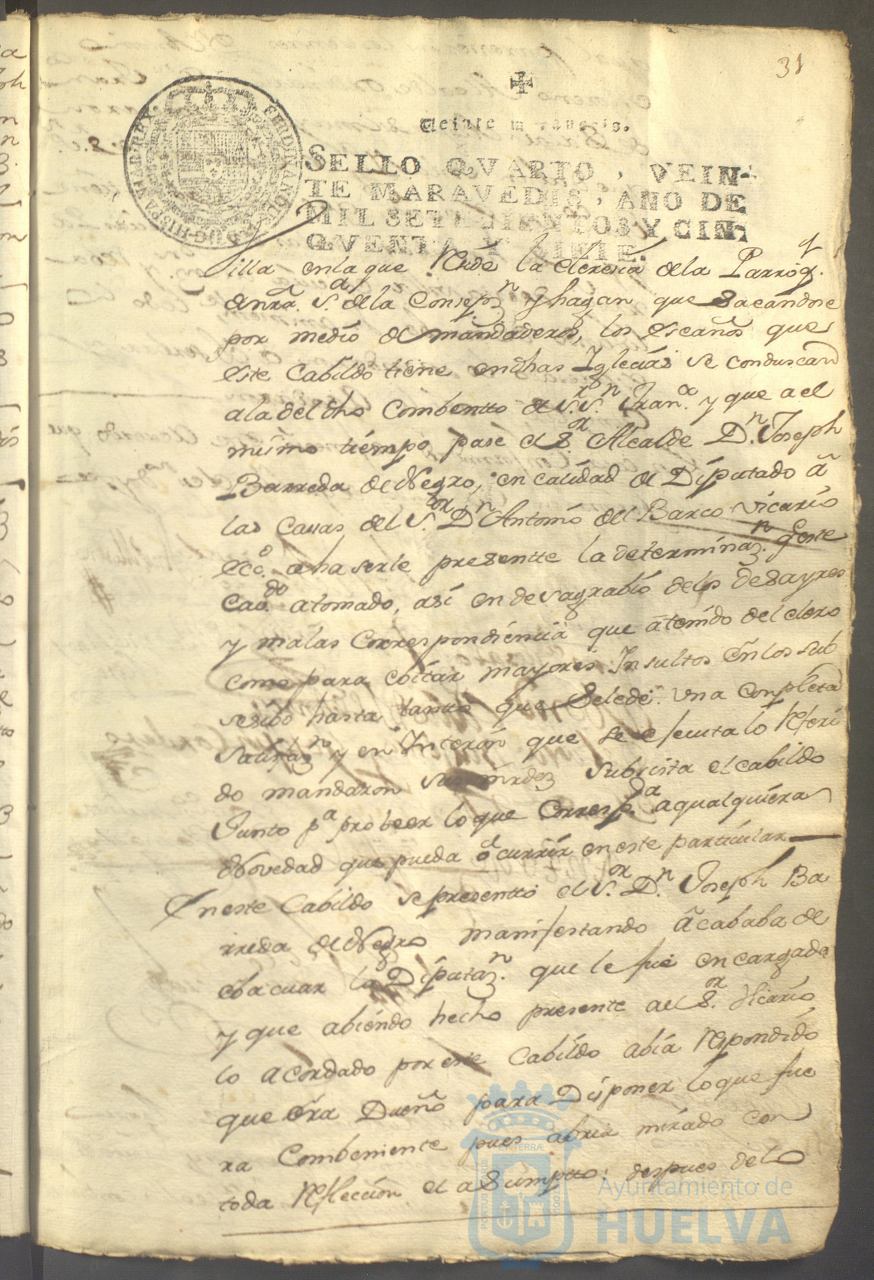 31
Veinte maravedis.
SELLO QVARTO, VEIN-
TE MARAVEDIS, AÑO DE
MIL SETECIENTOS Y CIN-
QVENTA Y SIETE.
FERDINANDUS VI D.G. HISPANIAR. REX
silla en la que reside la cleresia de la Parroq.
de nrâ. Sª. de la Consepzn. y hagan que sacandose
por medio de mandaderos, los escaños que
este Cabildo tiene en dhas Iglecias se conduscan
a la del dho Combentto de S.r S.n Fran.co y que a el
mismo tiempo pase el S.or Alcalde D.n Joseph
Barreda de Negro, en calidad de Diputado â
las Casas del S.or D.n Antonio del Barco Vicario
ecc.o a haserle presentte la determinaz.n q este
Cav.do a tomado, asi en desagrabio de los desayres
y malas Correspondiencia que â tenido del clero
como para evitar mayores Insultos en los sub
sesibo hasta tanto que se le dé una completa
satisfaz.n y en Interin que se efecuta lo referi
do mandaron sus mrdes subsista el cabildo
Junto p.a probeer lo que Corresp.a a qualquiera
Novedad que pueda ocurrir en este particular
En este Cabildo se presenttó el S.or D.n Joseph Ba
rreda de Negro manifestando âcababa de
ebacuar la Diputaz.n que le fué encargada
y que abiendo hecho presente al S.or Vicario
lo acordado por este Cabildo abia respondido
que era Dueño para Disponer lo que fue
ra Combeniente pues abria mirado con
toda reflección el asumptto: despues de lo
Ayuntamiento de
HUELVA